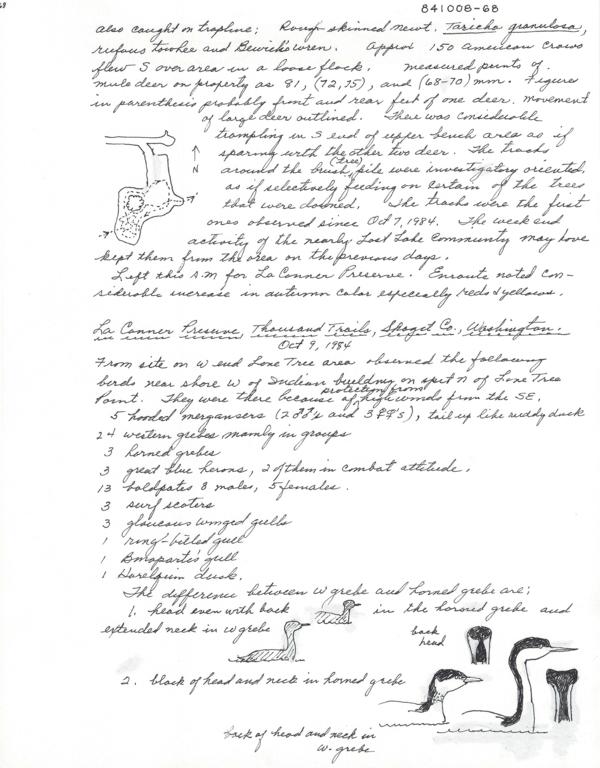 841008-68
also caught on trapline; Rough-skinned newt, Taricha granulosa,
rufous towhee and Bewick's wren. Approx 150 American Crows
flew S over area in a loose flock. measured prints of
mule deer on property as 81, (72,75), and (68-70) mm. Figures
in parenthesis probably front and rear feet of one deer. movement
of large deer outlined. There was considerable
trampling in S end of upper bench area as if
sparing with the other two deer. The tracks
around the brush (tree) pile were investigatory oriented,
as if selectively feeding on certain of the trees
that were downed. The tracks were the first
ones observed since Oct 7, 1984. The week end
activity of the nearby Lost Lake Community may have
kept them from the area on the previous days.
Left this a.m for La Conner Preserve. Enroute noted con-
siderable increase in autumn color especially reds & yellows.
N
La Conner Preserve, Thousand Trails, Skagit Co., Washington.
Oct 9, 1984
From site on W end Lone Tree area observed the following
birds near shore W of Indian building on spit N of Lone Tree
Point. They were there because of protection from high winds from the SE.
5 hooded mergansers (2♂♂'s and 3♀♀'s), tail up like ruddy duck
24 western grebes mainly in groups
3 horned grebes
3 great blue herons, 2 of them in combat attitude.
13 baldpates 8 males, 5 females.
3 surf scoters
3 glaucous winged gulls
1 ring-billed gull
1 Bonaparte's gull
1 Harlequin duck.
The difference between W grebe and horned grebe are;
1. head even with back in the horned grebe and
extended neck in W grebe
back
head
2. black of head and neck in horned grebe
back of head and neck in
W. grebe